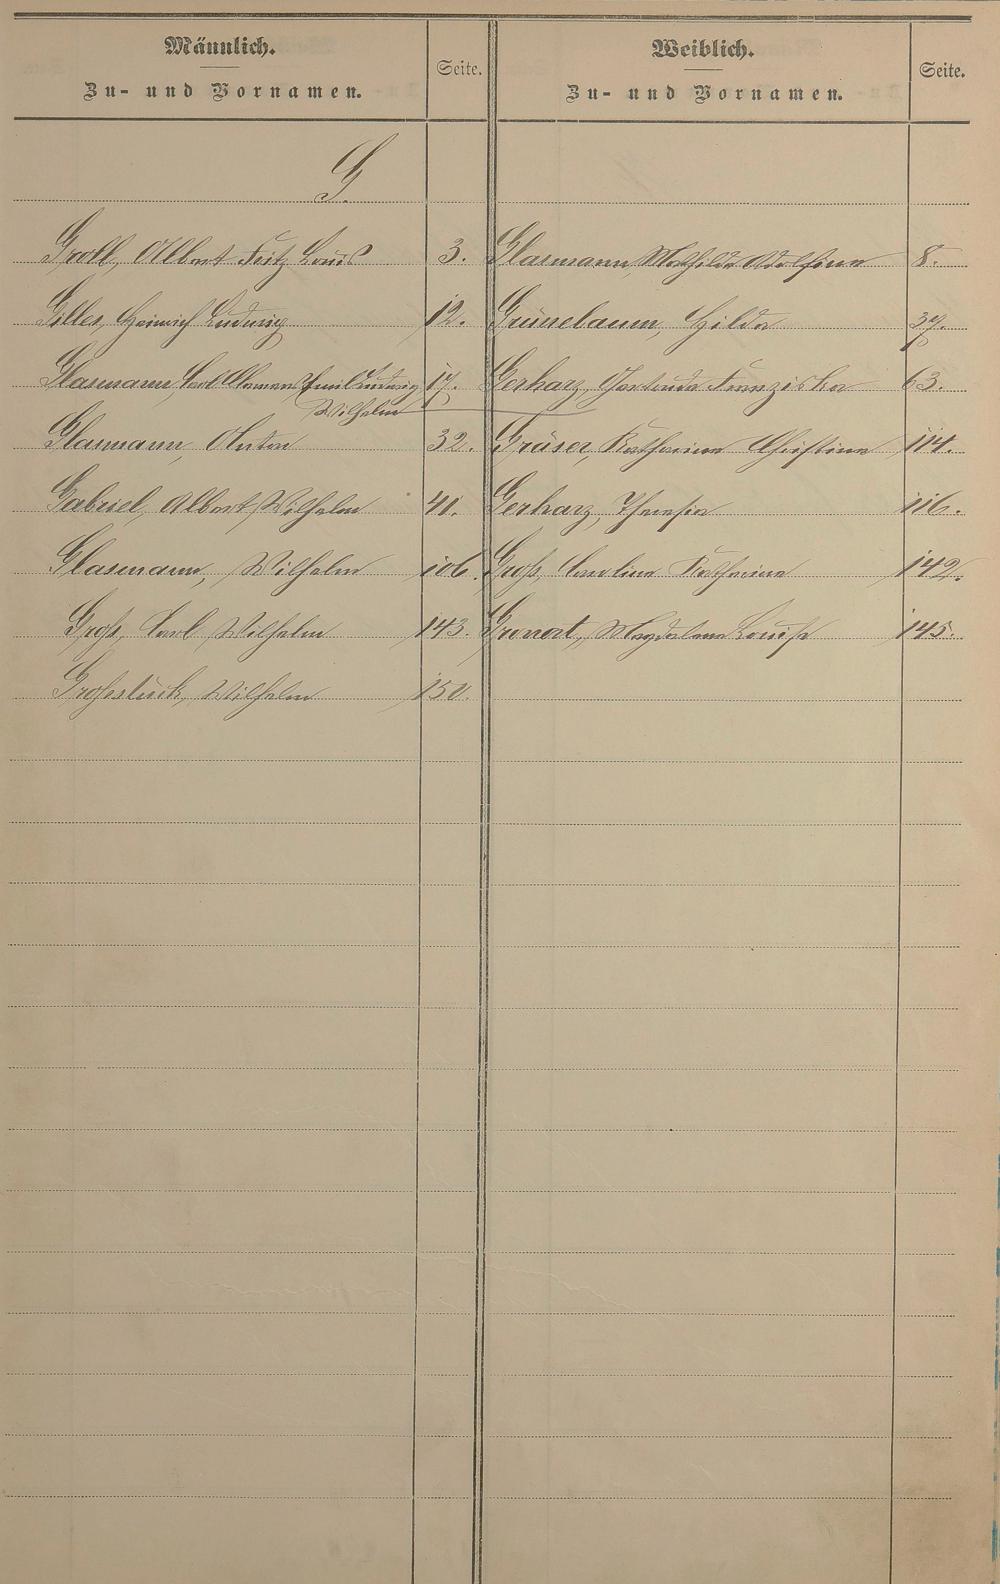 Männlich.
Zu- und Vornamen.
Seite.
Weiblich.
Zu- und Vornamen.
Seite.
G.
Groll, Albert Fritz Louis 3.
Gilles, Heinrich Ludwig 12.
Glasmann Carl Clemens Emil Ludwig 17.
Wilhelm
Glasmann, Anton 32.
Gabriel, Albert Wilhelm 41.
Glasmann, Wilhelm 106.
Groß, Carl Wilhelm 143.
Großstück, Wilhelm 150.
Glasmann, Mathilde Adolfine 8.
Grünebaum, Hilda 37.
Gerharz, Gertrude Franziska 63.
Gräser, Katharina Christina 114.
Gerharz, Theresia 116.
Groß, Carolina Katharina 142.
Gronert, Magdalena Louise 145.